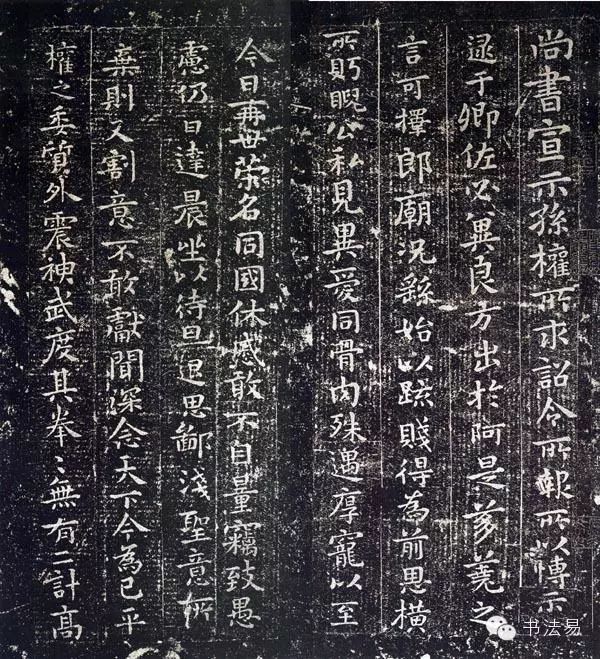 尚書宣示孫權所求詔令所報所以博示
逮于卿佐必冀良方出於阿是芻蕘之
言可擇郎廟況繇始以疏賤得為前恩橫
所貺睨公私見異愛同骨肉殊遇厚寵以至
今日再世榮名同國休慼敢不自量竊致愚
慮仍日達晨坐以待旦退思鄙淺聖意所
棄則又割意不敢獻聞深念天下今為已平
權之委質外震神武度其拳〻無有二計高
书法易